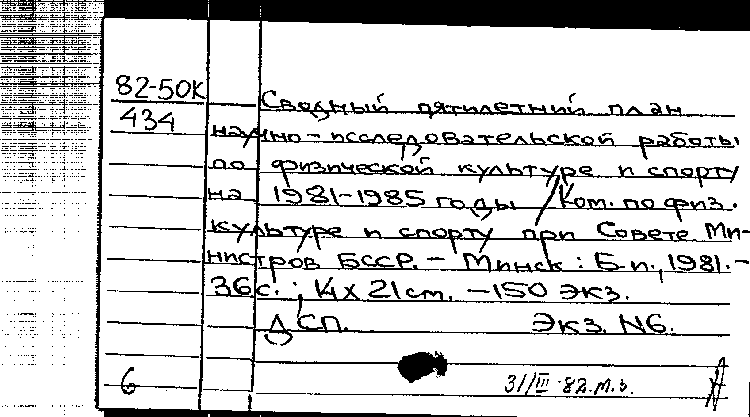 82-50К
434
Сводный пятилетний план
научно-исследовательской работы
по физической культуре и спорту
на 1981-1985 годы /Ком. по физ.
культуре и спорту при Совете Ми-
нистров БССР. - Минск : Б.и., 1981. -
36с. ; 14 x 21 см. - 150 экз.
ДСП. Экз. N6.
6 31/III-82.м.з.